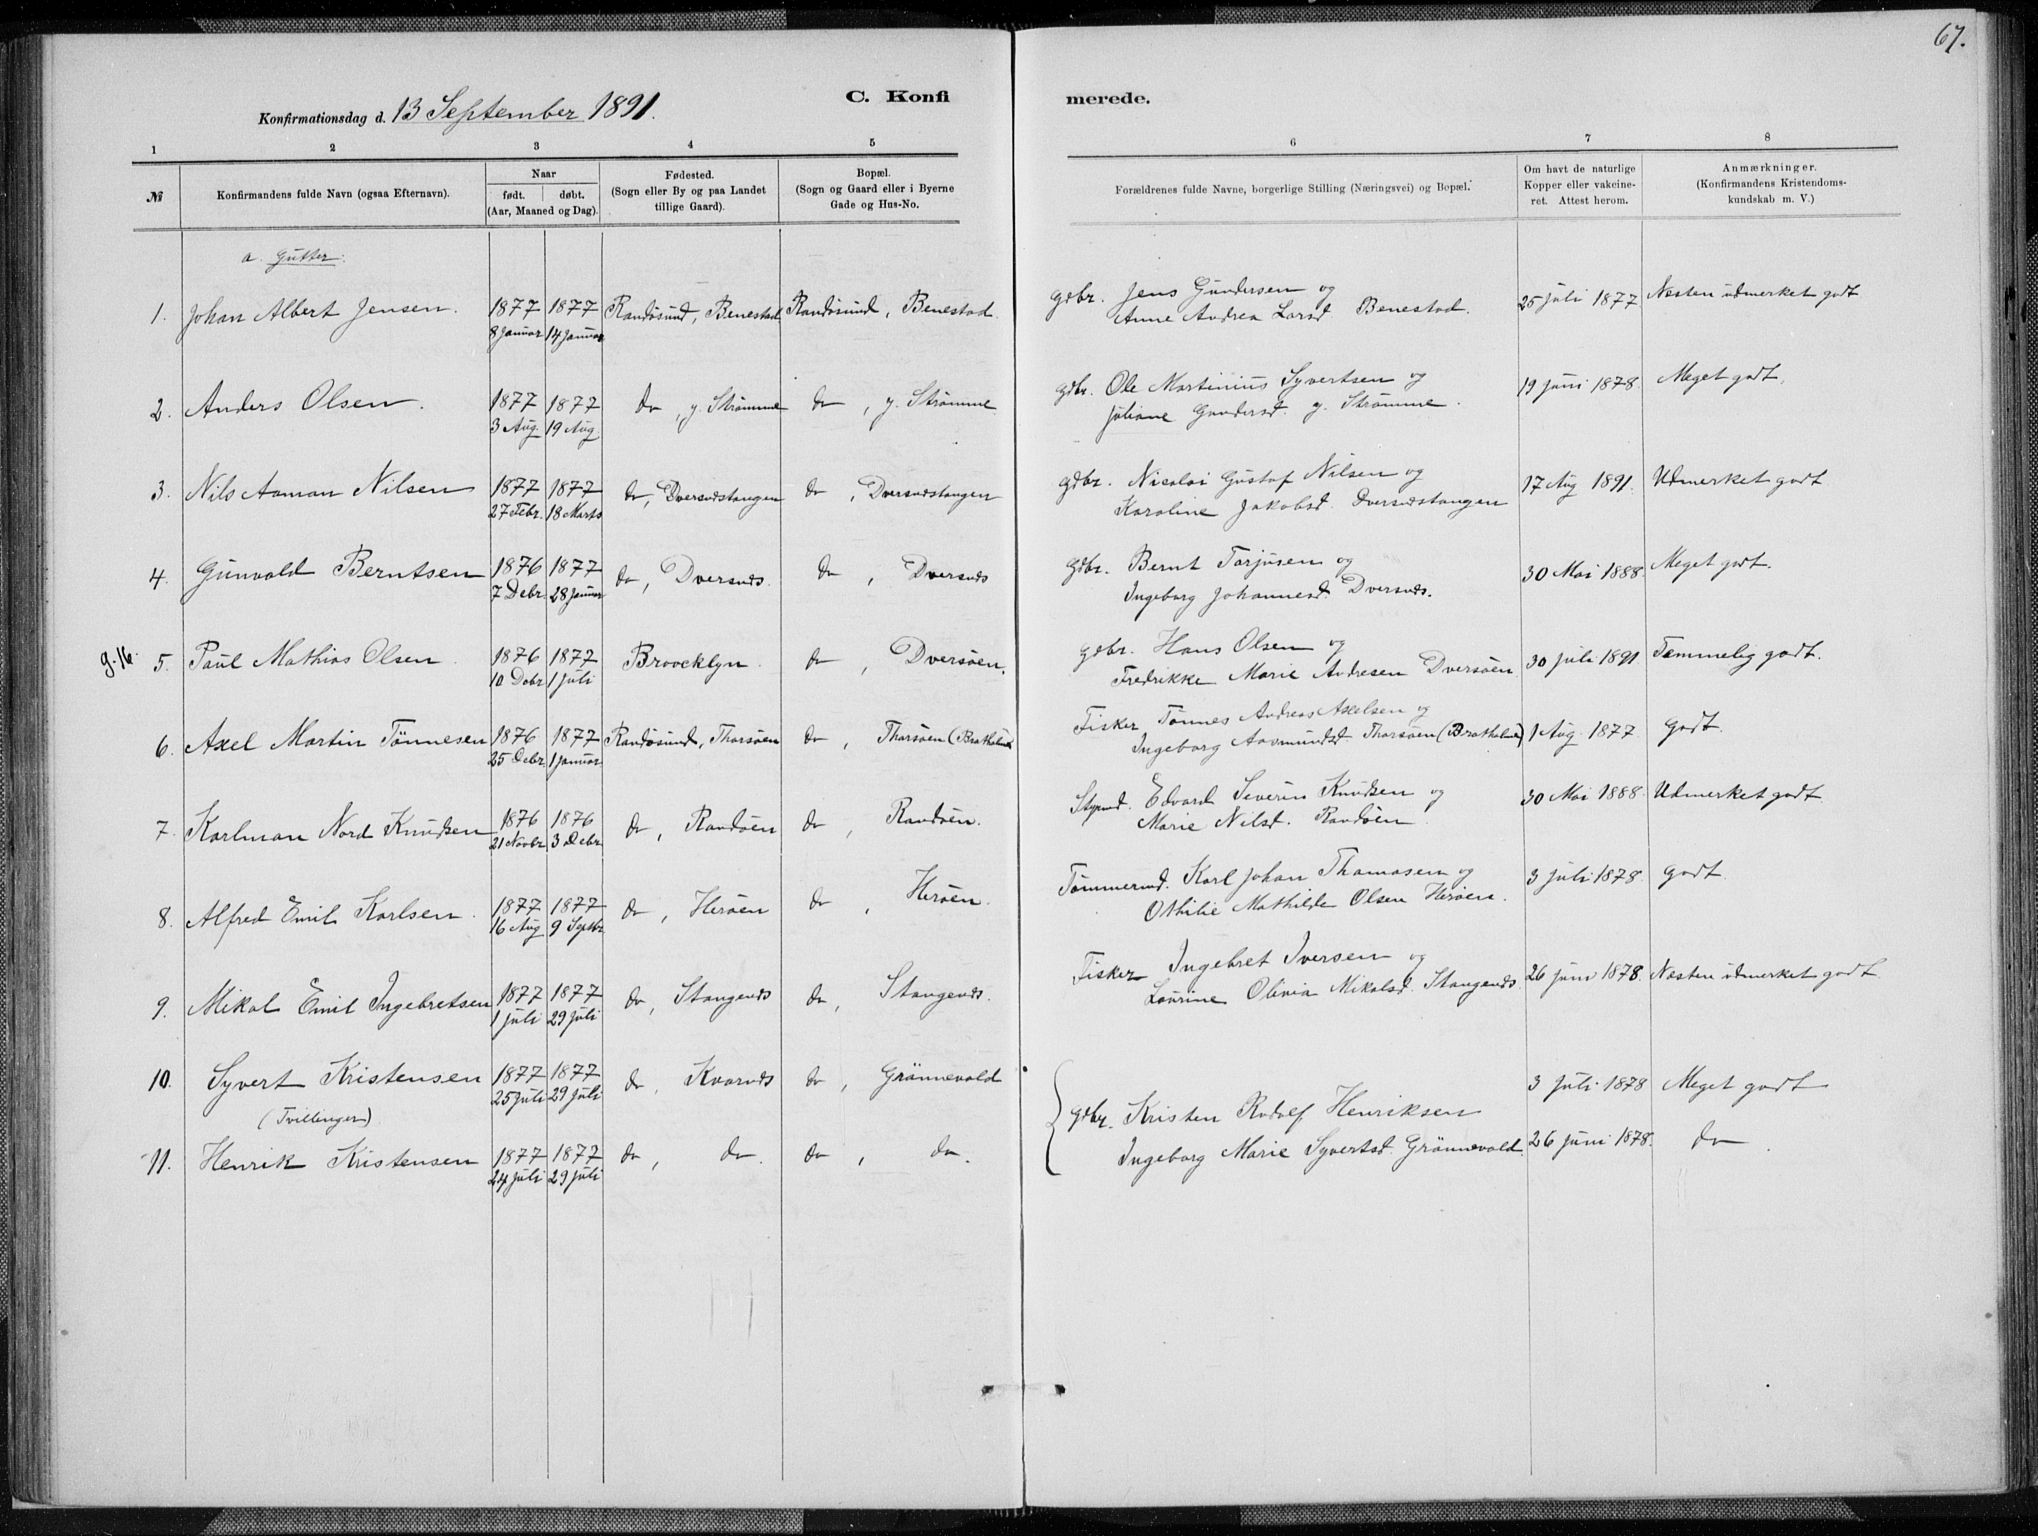 67.
C. Konfi merede.
Konfirmationsdag d. 13 September 1891.
1 2 3 4 5 6 7 8
№ Konfirmandens fulde Navn (ogsaa Efternavn).
Naar
født. døbt.
(Aar, Maaned og Dag).
Fødested.
(Sogn eller By og paa Landet
tillige Gaard).
Bopæl.
(Sogn og Gaard eller i Byerne
Gade og Hus-No.
Forældrenes fulde Navne, borgerlige Stilling (Næringsvei) og Bopæl.
Om havt de naturlige
Kopper eller vakcine-
ret. Attest herom.
Anmærkninger.
(Konfirmandens Kristendoms-
kundskab m. V.)
a. Gutter.
1. Johan Albert Jensen. 1877 1877 Randøsund, Benestad Randøsund, Benestad. gdbr. Jens Gundersen og 25 juli 1877 Næsten udmerket godt
8 Januar 14 Januar Anne Andrea Larsd. Benestad.
2. Anders Olsen. 1877 1877 do, y. Strømme do, y. Strømme gdbr. Ole Martinius Syvertsen og 19 juni 1878. Meget godt.
3 Aug. 19 Aug. Juliane Gundersd. y. Strømme.
3. Nils Aaman Nilsen 1877 1877 do, Dversnæstangen do, Dversnæstangen gdbr. Nicolai Gustaf Nilsen og 17 Aug 1891. Udmerket godt
27 Febr. 18 Marts Karoline Jakobsd. Dversnæstangen
4. Gunvald Berntsen 1876 1877 do, Dversnæs. do, Dversnæs gdbr. Bernt Tarjusen og 30 Mai 1888. Meget godt.
7 Debr. 28 Januar Ingeborg Johannesd. Dversnæs.
g. 16. 5. Paul Mathias Olsen. 1876 1877 Broocklyn. do, Dversøen. gdbr. Hans Olsen og 30 juli 1891 Temmelig godt.
10 Debr 1 juli Fredrikke Marie Andresen Dversøen
6. Axel Martin Tönnesen 1876 1877 Randøsund, Tharsøen do, Tharsøen (Bratholmen) Fisker Tønnes Andreas Axelsen og 1 Aug. 1877. godt.
25 Debr. 1 januar Ingeborg Aasmundsd. Tharsøen (Bratholmen)
7. Karlman Nord Knudsen 1876 1876 do, Randøen do, Randøen. Styrmd. Edvard Severin Knudsen og 30 Mai 1888. Udmerket godt
21 Novbr. 3 Debr. Marie Nilsd. Randøen.
8. Alfred Emil Karlsen. 1877 1877 do, Herøen do, Herøen. Tømmermd. Karl Johan Thomasen og 3 juli 1878. godt.
16 Aug 9 Septbr. Othilie Mathilde Olsen Herøen.
9. Mikal Emil Ingebretsen 1877 1877 do, Stangenæs do, Stangenæs. Fisker Ingebret Iversen og 26 juni 1878. Næsten udmerket godt.
1 juli 29 juli Laurine Olivia Mikalsd. Stangenæs
10. Syvert Kristensen 1877 1877 do, Kvarnæs do, Grønnevold 3 juli 1878 Meget godt
25 juli 29 juli
(Tvillinger) gdbr. Kristen Rudolf Henriksen
11. Henrik Kristensen 1877 1877 do, do. do, do. Ingeborg Marie Syvertsd. Grønnevold. 26 juni 1878. do
24 juli 29 juli